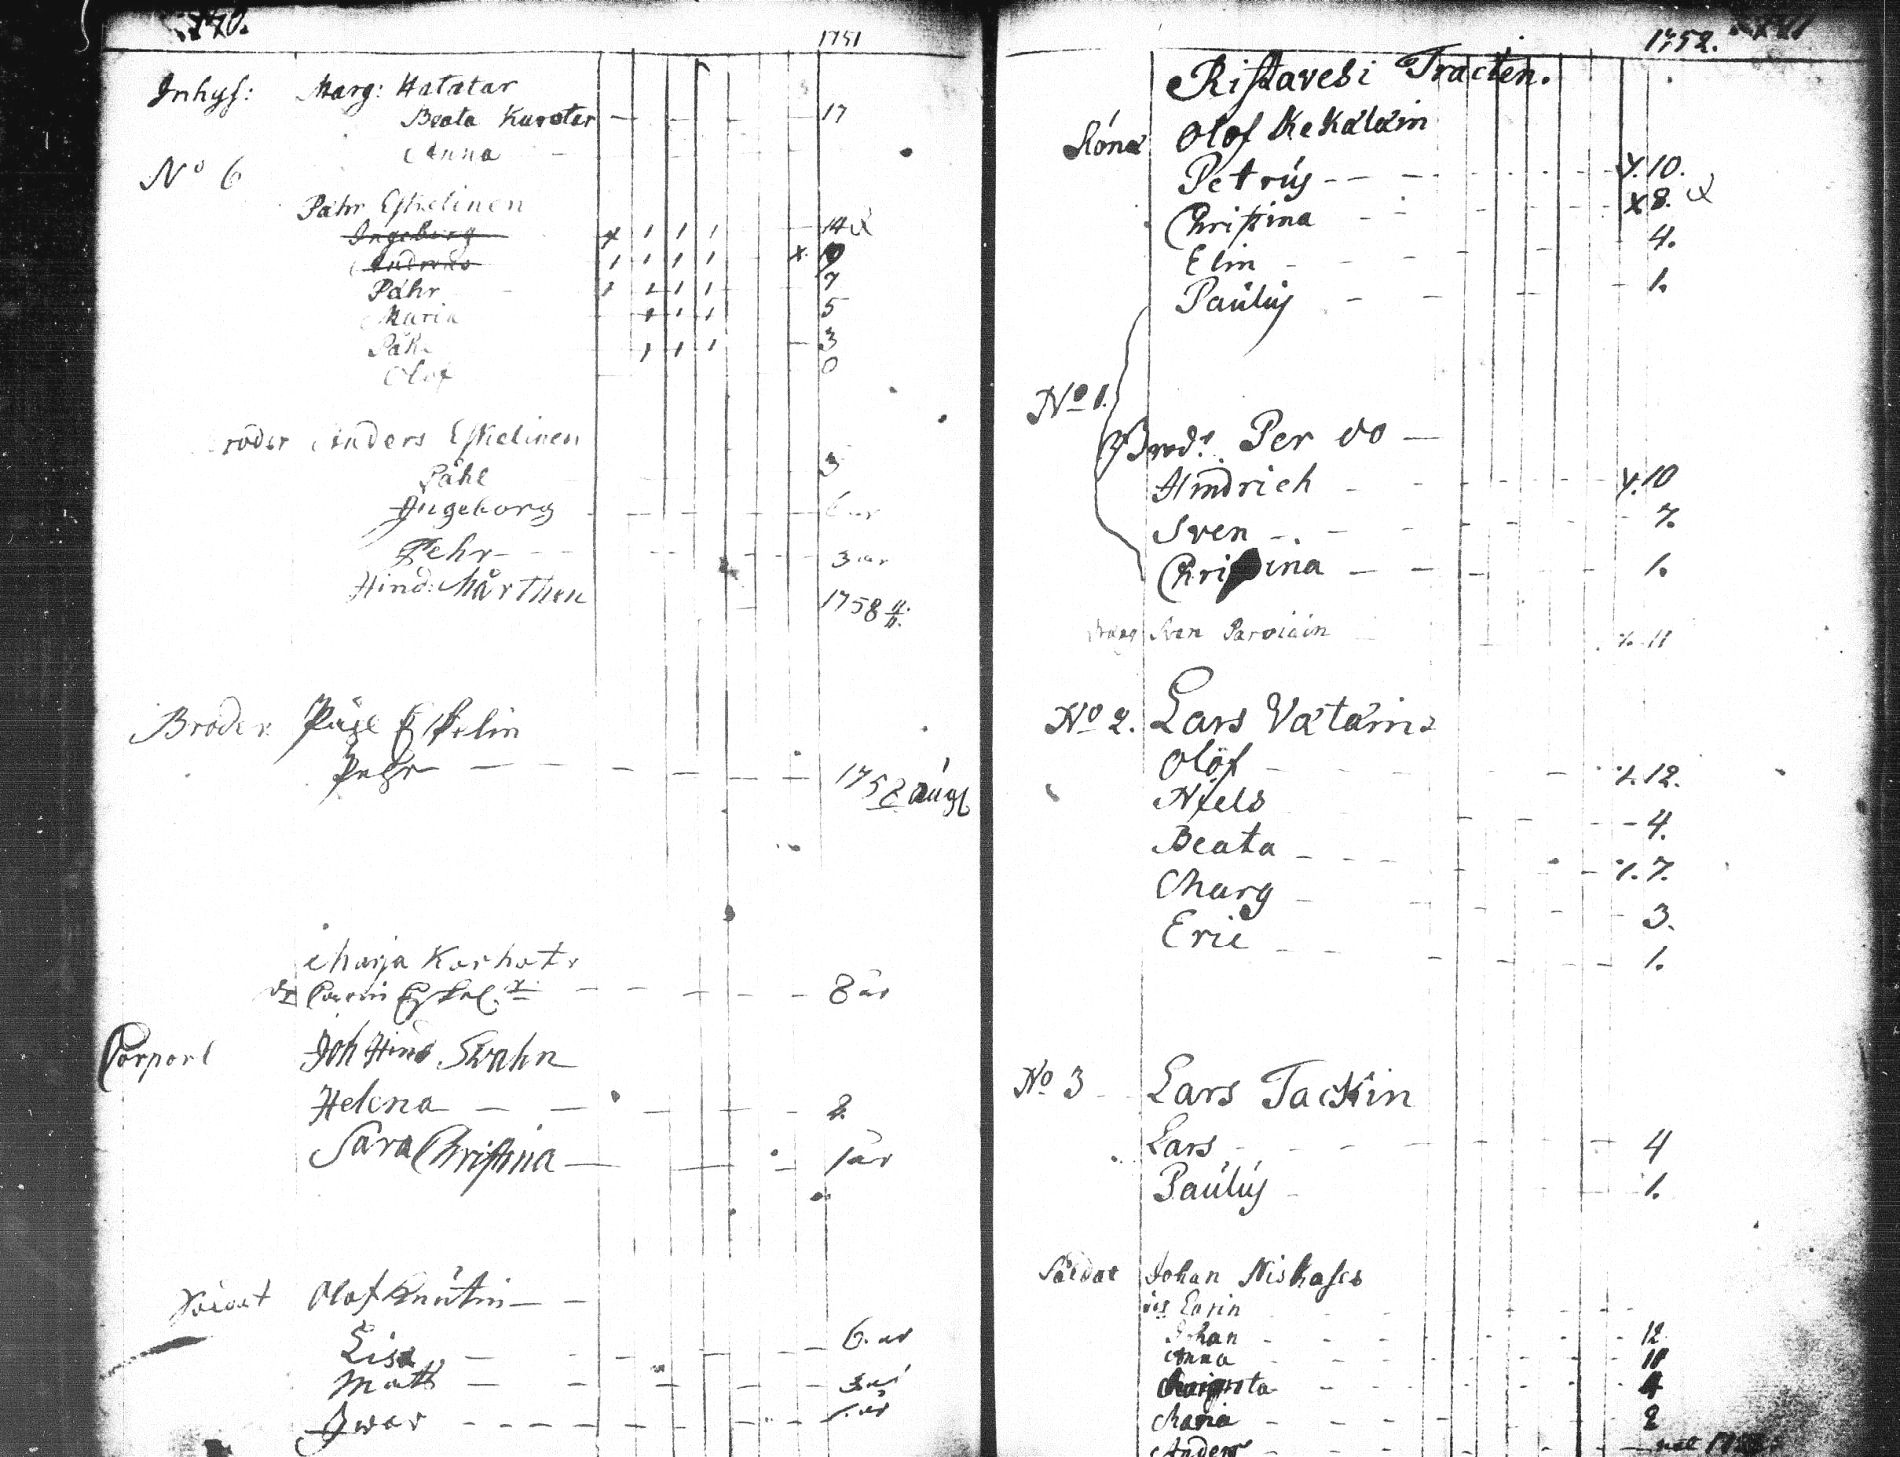 1751
Inhys: Marg: Hatatar
Beata Kurotar 17
Anna
No 6
Påhr Eskelinen
Ingeborg 14
Andreas
Påhr 7
Maria 5
Påhl 3
Olof 0
roder Anders Eskelinen
Påhl 3
Ingeborg 6 år
Pehr 3 år
Hind: Mårthen 1758
Broder Påhl Eskelin
Pehr 1758 Augl
Marja Korhot
8 år
Corporl Joh Hind Svahn
Helena 2.
Sara Christina 1 år
Soldat Olof Knutin
Lisa 6. år
Matts 3 år
Ivar 1. år
1752.
Ristavesi Tracten.
Olof Kekäläin
Petrus 10.
Christina x 8.
Elin 4.
Paulus 1.
No 1.
Brodr. Per do
Hindrich 10
Sven 7.
Christina 1.
Sven Parviain 11
No 2. Lars Vätäin
Olof 12.
Niels 4.
Beata 7.
Marg 3.
Eric 1.
No 3 Lars Tackin
Lars 4
Paulus 1.
Soldat Johan Niskases
Carin
Johan 12
Anna 10
Margreta 4
Maria 2
Anders